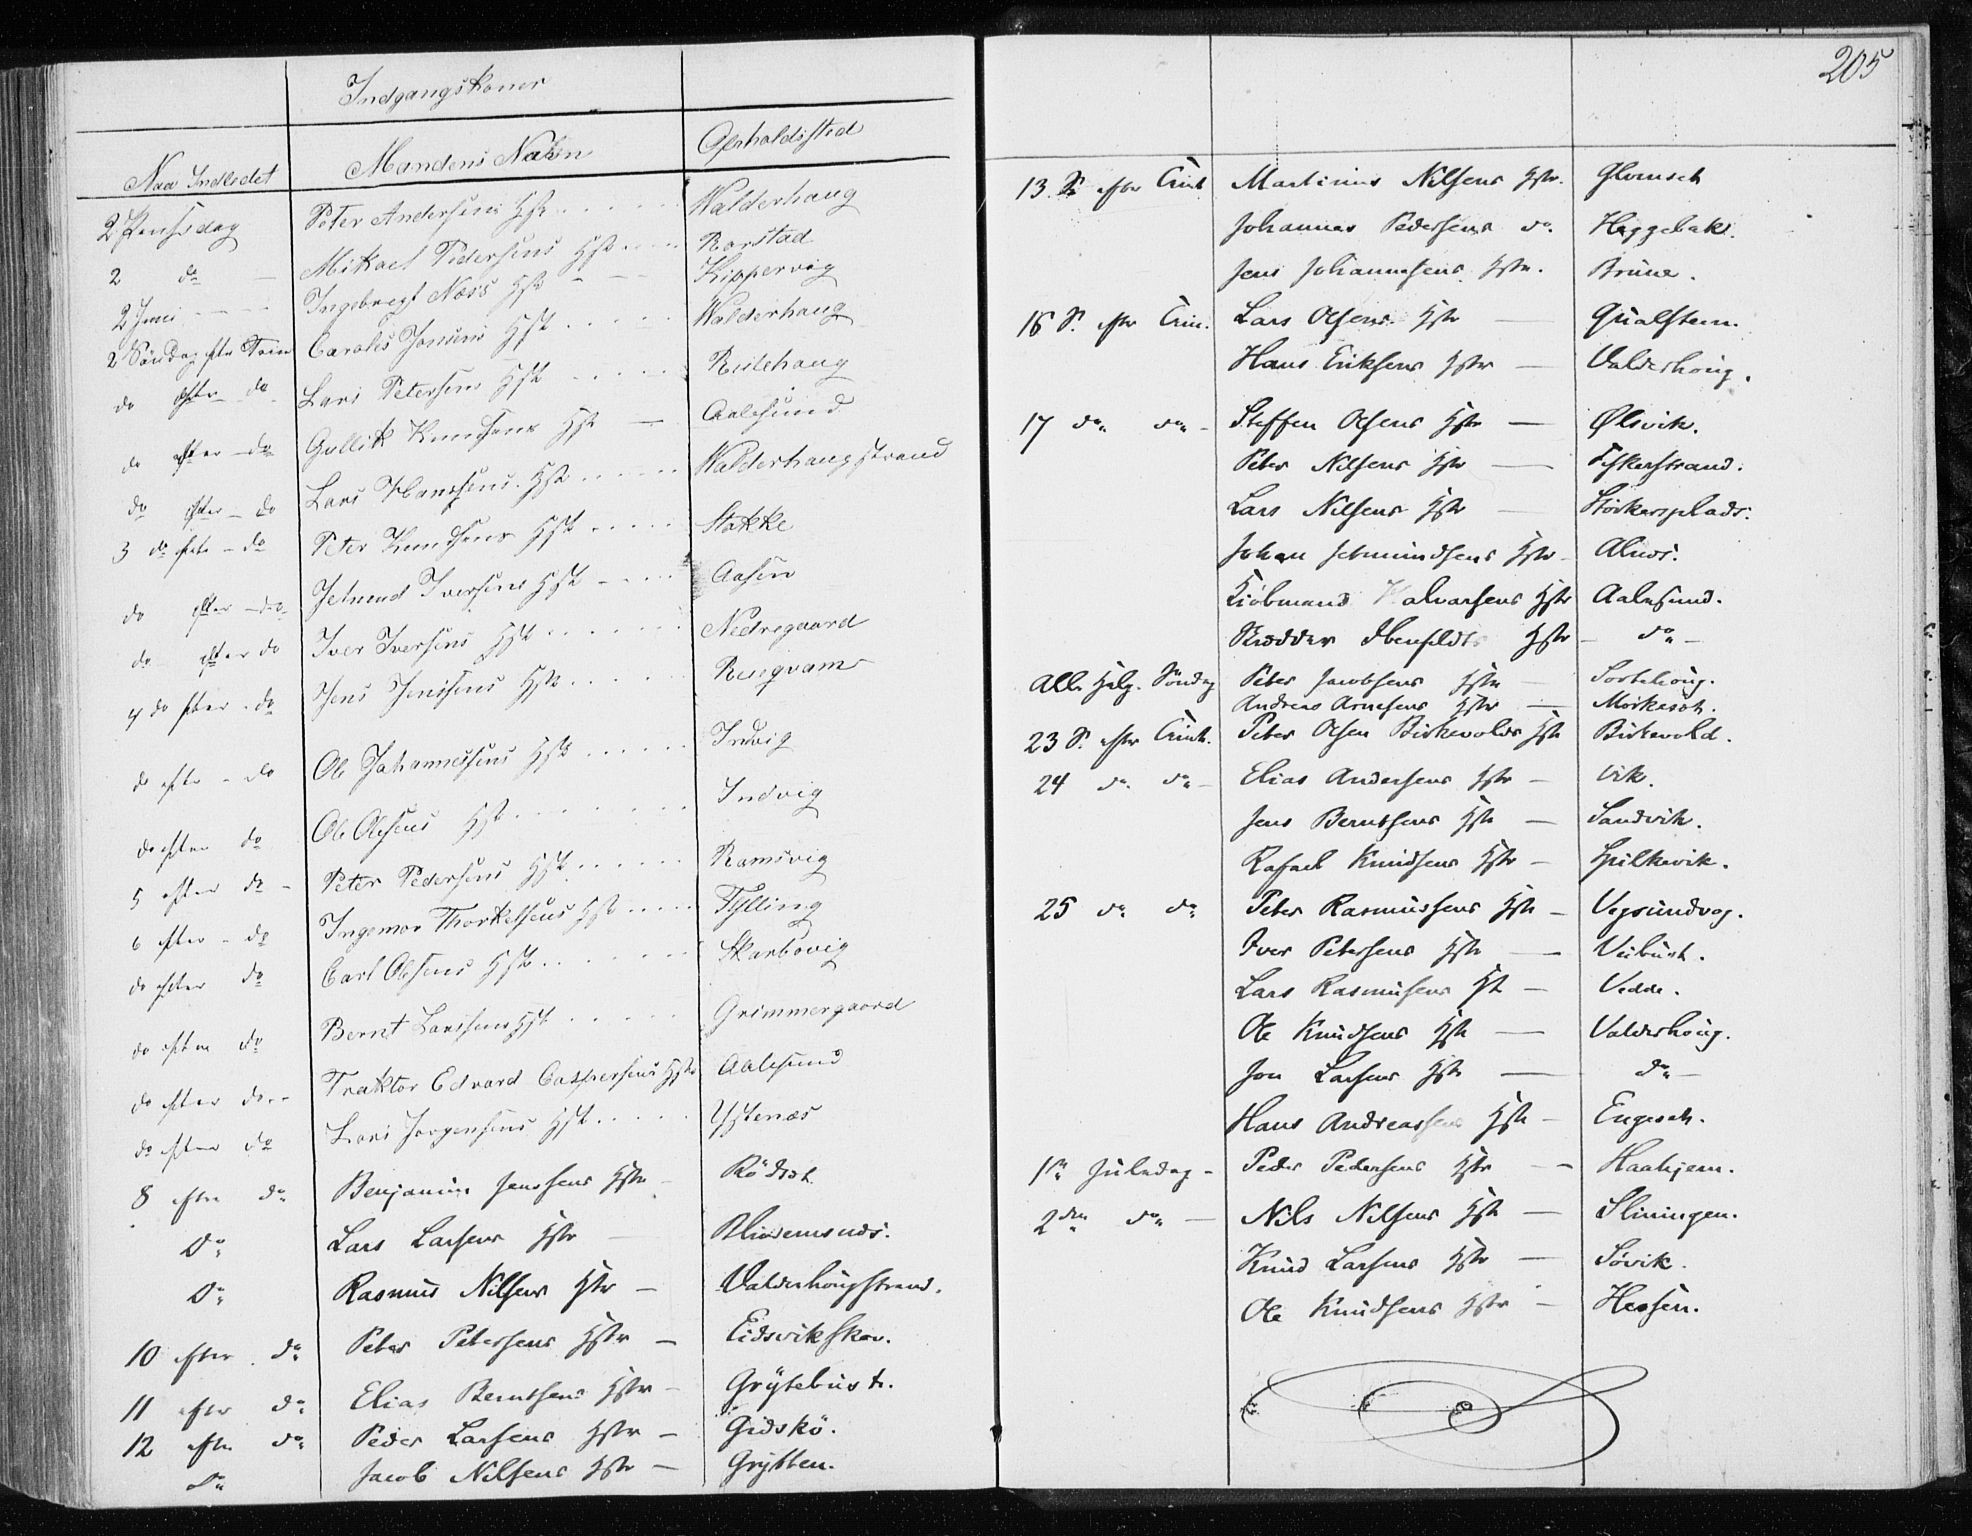 Indgangskoner
Naar Indledet Mandens Navn Opholdssted
2 Pensedag Peter Andersens Hst Walderhaug
2 do Mikael Pedersens Hst Rorstad
2 Juni Ingebregt Næss Hst Kippervig
2 Søndag efter Trin Carolus Jonsens Hst Walderhaug
do efter do Lars Petersens Hst Rislehaug
do efter do Gullik Knudsens Hst Aalesund
do efter do Lars Hansens Hst Walderhaugstrand
3 do efter do Peter Knudsens Hst Stokke
do efter do Jetmund Iversens Hst Aasen
do efter do Iver Iversens Hst Nedregaard
4 do efter do Jens Jensens Hst
do efter do Ole Johannesens Hst Indvig
do efter do Ole Olsens Hst Indvig
5 efter do Peter Pedersens Hst Ramsvig
6 efter do Ingemar Thorkelsens Hst Fylling
do efter do Carl Olsens Hst Skarbövig
do efter do Bernt Larsens Hst Grimmergaard
do efter do Traktor Edvard Caspersens Hst Aalesund
do efter do Lars Jørgensens Hst Ystenæs
8 efter do Benjamin Jensens Hstr Rödset
Do Lars Larsens Hstr Blindemsnds.
Do Rasmus Nilsens Hstr Valderhougstrand.
10 efter do Peter Petersens Hstr Eidsvikskov.
11 efter do Elias Berntsens Hstr Grytebust.
12 efter do Peder Larsens Hstr Gidskö.
Do Jacob Nilsens Hstr Grytten.
205
13 S. efter Trint. Martinus Nilsens Hstr. Glomset
Johannes Pedersens do. Heggebak.
Jens Johannesens Hstr. Brune.
16 S. efter Trin. Lars Olsens Hstr Qualsteen.
Hans Eriksens Hstr Valderhoug.
17 do do Steffen Olsens Hstr Ølsvik.
Peter Nilsens Hstr Fiskerstrand.
Lars Nilsens Hstr Störkersplads.
Johan Jetmundsens Hstr Alnæs.
Kiöbmand Halvorsens Hstr Aalesund.
Skrædder Hstr do
Alle Helg. Söndag Peter Jacobsens Hstr Sortehoug.
Andreas Arnesens Hstr Mörkeset.
23 S. efter Trint. Peter Olsen Birkevolds Hst Birkevold.
24 do do Elias Andersens Hstr Vik.
Jens Berntsens Hstr Sandvik.
Rafael Knudsens Hstr Spilkevik.
25 do do Peter Rasmussens Hstr Vegsundvog.
Iver Petersens Hstr Veibust.
Lars Rasmusens Hst Vedde.
Ole Knudsens Hstr Valderhoug.
Jon Larsens Hstr do
Hans Andreassens Hstr Engeset.
1ste Juledag Peder Pedersens Hstr Haahjem.
2den do Nils Nilsens Hstr Sliningen.
Knud Larsens Hstr Sövik.
Ole Knudsens Hstr Hessen.